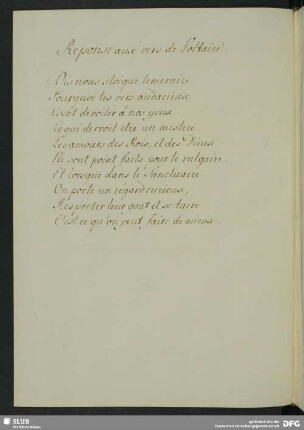 Reponse aux vers de Voltaire.
Dis nous stoique temeraire
Pourquoi tes vers audacieux
Vont devoiler à nos yeux
Ce qui devroit etre un mistere.
Les amours des Rois, et des Dieux
Ne sont point faits pour le vulgaire.
Et lorsque dans le Sanctuaire
On porte un regard curieux,
Respecter leur gout et se taire
C'est ce qu'on peut faire de mieux.
SLUB
Wir führen Wissen.
gefördert von der
Deutschen Forschungsgemeinschaft
DFG